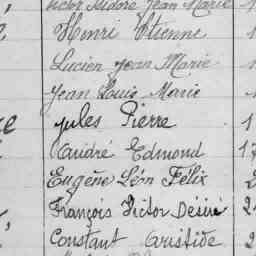 Victor Isidore Jean Marie
Henri Etienne 1
Lucien Jean Marie 1
Jean Louis Marie
Jules Pierre 1
André Edmond 17
Eugène Léon Félix 2
François Victor Désiré 2
Constant Aristide 2